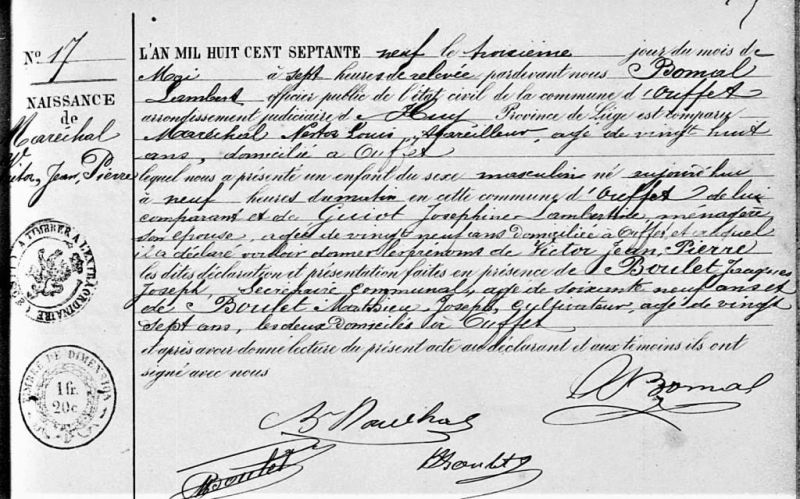 No 17
NAISSANCE
de
Maréchal
Victor, Jean, Pierre
TIMBRE A L'EXTRAORDINAIRE
TIMBRE DE DIMENSION
1 fr.
20 c
L'AN MIL HUIT CENT SEPTANTE neuf le troisième jour du mois de
Mai à sept heures de relevée pardevant nous Bomal
Lambert officier public de l'état civil de la commune d'Ouffet
arrondissement judiciaire d Huy Province de Liège est comparu
Maréchal Louis, agé de vingt huit
ans, domicilié à Ouffet
lequel nous a présenté un enfant du sexe masculin né aujourd'hui
à neuf heures du matin en cette commune d'Ouffet de lui
comparant et de Guiot Josephine Lambertine, menagère
son épouse, agée de vingt neuf ans domiciliée à Ouffet et auquel
il a déclaré vouloir donner les prénoms de Victor Jean Pierre
les dites déclaration et présentation faites en présence de Boulet Jacques
Joseph, Secrétaire communal, agé de soixante neuf ans et
de Boulet Mathieu Joseph, cultivateur, agé de vingt
sept ans, les deux domiciliés à Ouffet
et après avoir donné lecture du présent acte au déclarant et aux témoins ils ont
signé avec nous
Bomal
Boulet
Boulet